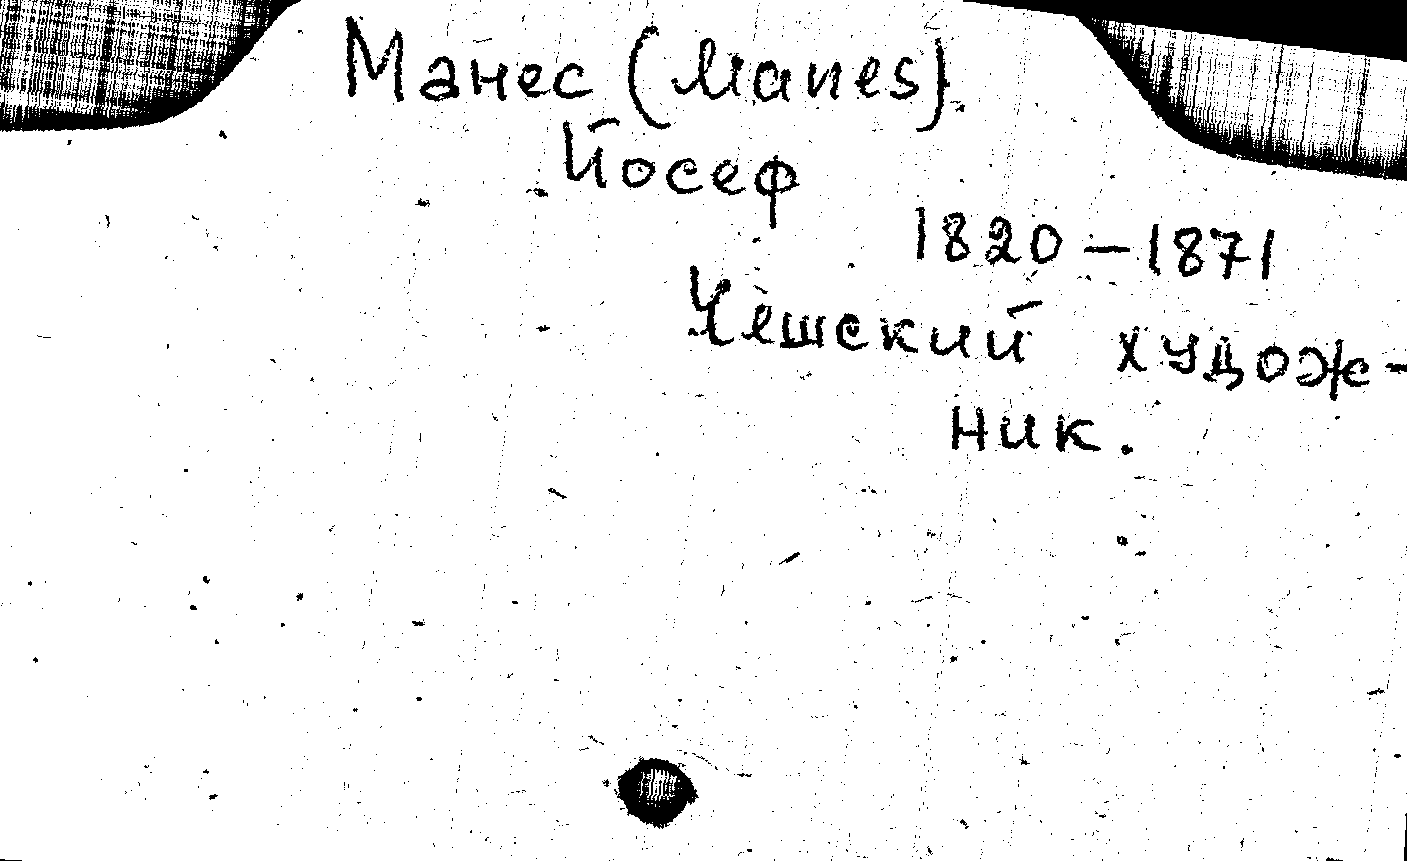 Манес (Manes)
Йосеф
1820 – 1871
Чешский худож-
ник.